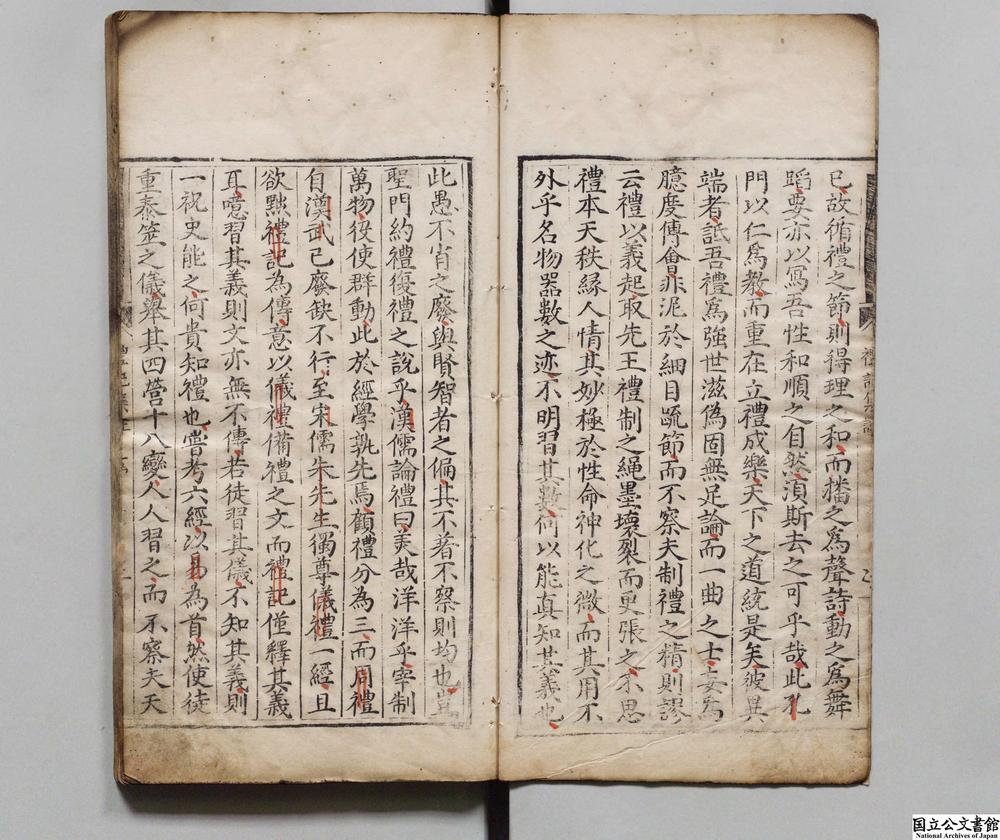 已故循禮之節則得理之和而播之為聲詩動之為舞
蹈要亦以寫吾性和順之自然湏斯去之可乎哉此孔
門以仁為教而重在立禮成樂天下之道統是矣彼異
端者詆吾禮為強世滋偽固無足論而一曲之士妄為
臆度傅會非泥於綱目䟽節而不察夫制禮之精則謬
云禮以義起取先王禮制之繩墨壞裂而更張之不思
禮本天秩縁人情其妙極於性命神化之微而其用不
外乎名物器數之迹不明習其數何以能真知其義也
此愚不肖之廢與賢智者之偏其不著不察則均也豈
聖門約禮復禮之說乎漢儒論禮曰美哉洋洋乎宰制
萬物役使群動此於經學孰先焉顧禮分為三而周禮
自漢武已廢缺不行至宋儒朱先生獨尊儀禮一經且
欲㸃禮記為傳意以儀禮備禮之文而禮記僅釋其義
耳噫習其義則文亦無不傳若徒習其儀不知其義則
一祝史能之何貴知禮也嘗考六經以易為首然使徒
重泰筮之儀舉其四營十八變人人習之而不察夫天
国立公文書館
National Archives of Japan